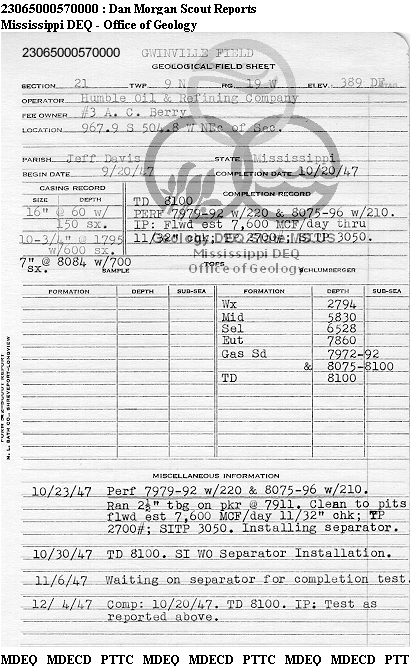 23065000570000 : Dan Morgan Scout Reports
Mississippi DEQ - Office of Geology
23065000570000 GWINVILLE FIELD
GEOLOGICAL FIELD SHEET
SECTION 21 TWP 9 N RG. 19 W ELEV. 389 DF
OPERATOR Humble Oil & Refining Company
FEE OWNER #3 A. C. Berry
LOCATION 967.9 S 504.8 W NEc of Sec.
PARISH Jeff Davis STATE Mississippi
BEGIN DATE 9/20/47 COMPLETION DATE 10/20/47
CASING RECORD COMPLETION RECORD
SIZE DEPTH TD 8100
16" @ 60 w/ PERF 7979-92 w/220 & 8075-96 w/210.
150 sx. IP: Flwd est 7,600 MCF/day thru
10-3/4" @ 1795 11/32" chk; TP 2700#; SITP 3050.
w/600 sx. Mississippi DEQ
7" @ 8084 w/700 TOPS Office of Geology
sx. SAMPLE SCHLUMBERGER
FORMATION DEPTH SUB-SEA FORMATION DEPTH SUB-SEA
Wx 2794
Mid 5830
Sel 6528
Eut 7860
Gas Sd 7972-92
& 8075-8100
TD 8100
MISCELLANEOUS INFORMATION
10/23/47 Perf 7979-92 w/220 & 8075-96 w/210.
Ran 2½" tbg on pkr @ 7911. Clean to pits
flwd est 7,600 MCF/day 11/32" chk; TP
2700#; SITP 3050. Installing separator.
10/30/47 TD 8100. SI WO Separator Installation.
11/6/47 Waiting on separator for completion test.
12/ 4/47 Comp: 10/20/47. TD 8100. IP: Test as
reported above.
MDEQ MDECD PTTC MDEQ MDECD PTTC MDEQ MDECD PTT